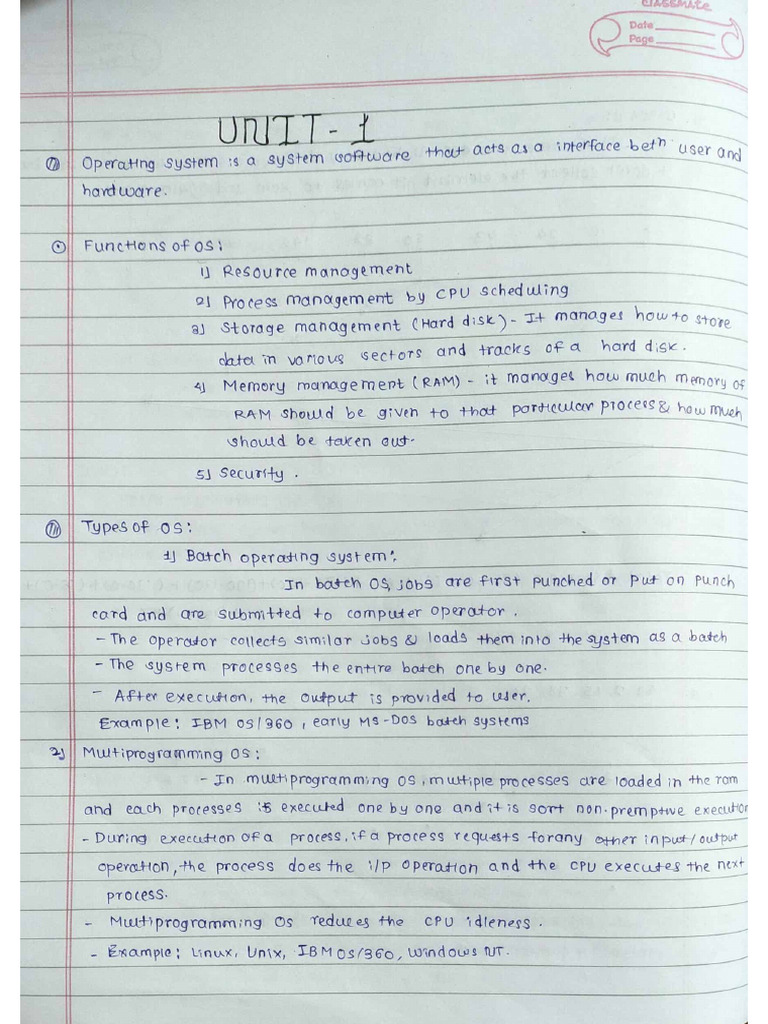 classmate
Date
Page
UNIT - 1
Operating system is a system software that acts as a interface betn user and
hardware.
Functions of OS:
1) Resource management
2) Process management by CPU scheduling
3) Storage management (Hard disk) - It manages how to store
data in various sectors and tracks of a hard disk.
4) Memory management (RAM) - it manages how much memory of
RAM should be given to that particular process & how much
should be taken out.
5) Security.
Types of OS:
1) Batch operating system:
In batch OS, jobs are first punched or put on punch
card and are submitted to computer operator.
- The operator collects similar jobs & loads them into the system as a batch
- The system processes the entire batch one by one.
- After execution, the output is provided to user.
Example: IBM OS/360, early MS-DOS batch systems
2) Multiprogramming OS:
- In multiprogramming OS, multiple processes are loaded in the ram
and each processes is executed one by one and it is sort non-premptive execution
- During execution of a process, if a process requests for any other input/output
operation, the process does the i/p operation and the CPU executes the next
process.
- Multiprogramming OS reduces the CPU idleness.
- Example: Linux, Unix, IBM OS/360, Windows NT.